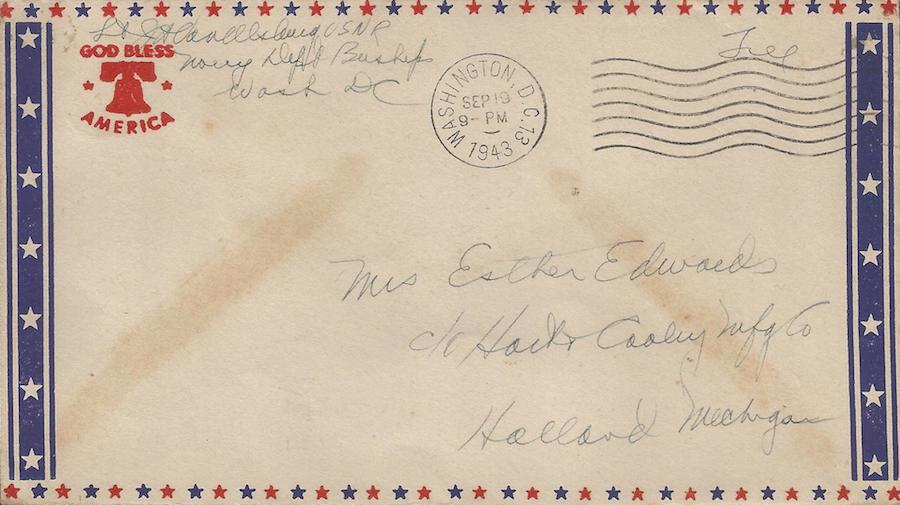 Lt USNR
Navy Dept Buships
Wash DC
GOD BLESS
AMERICA
WASHINGTON, D.C. 13
SEP 19
9 - PM
1943
Free
Mrs Esther Edwards
c/o Hart & Cooley Mfg Co
Holland Michigan